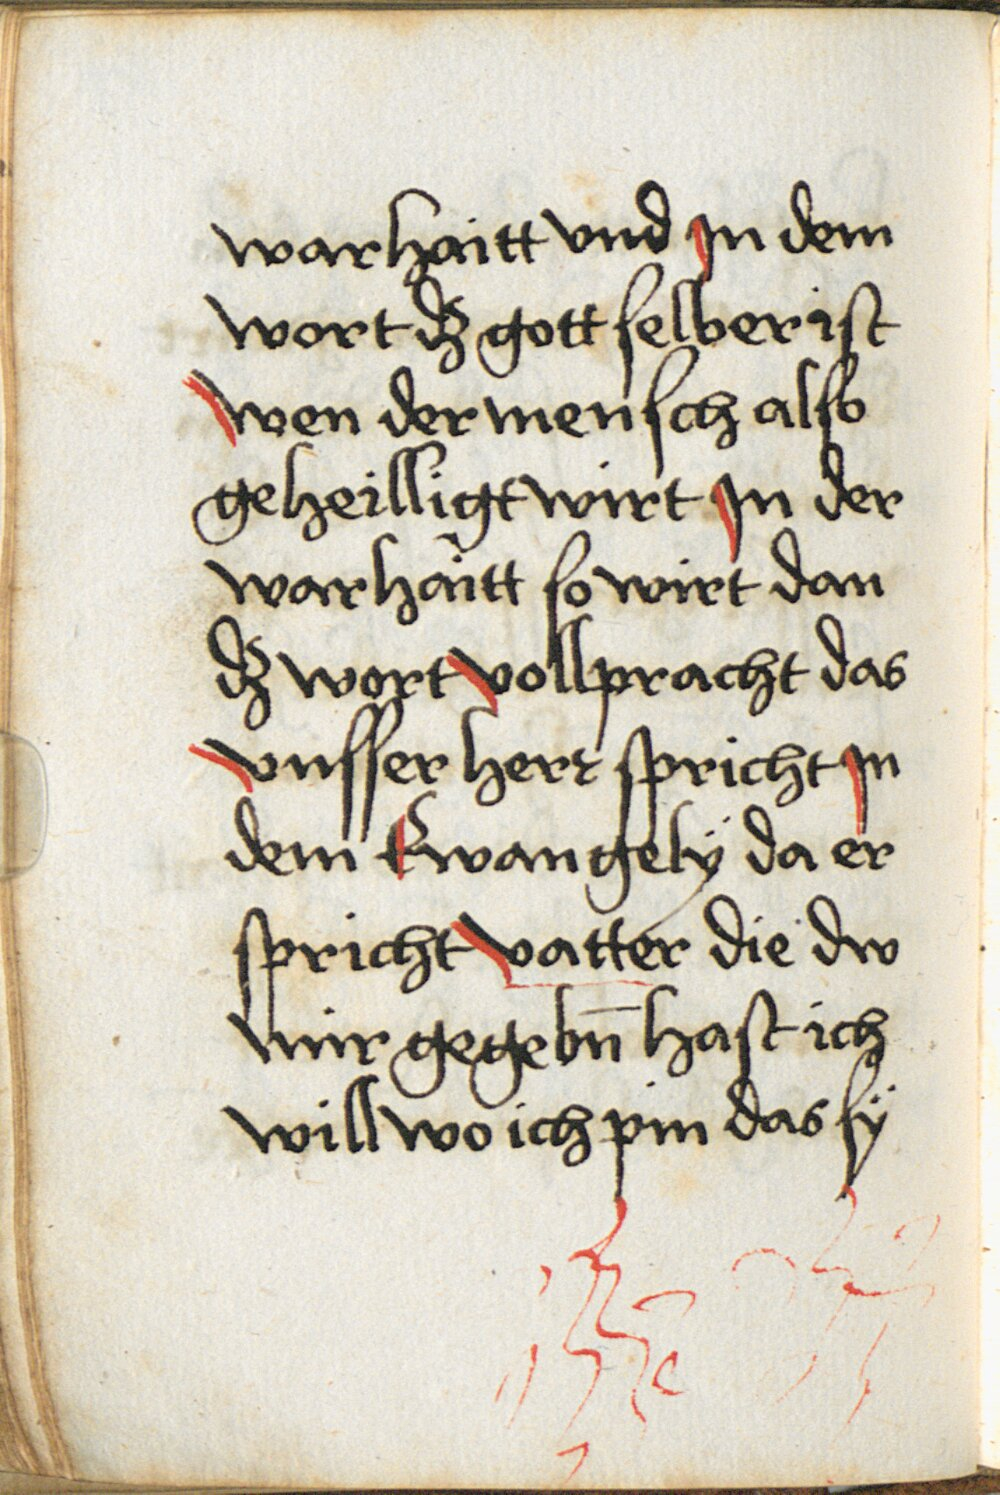 warhaitt vnd In dem
wort dz gott selber ist
wen der mensch also
geheilligt wirt In der
warhaitt so wirt dan
dz wort vollpracht das
vnsser herr spricht In
dem Ewangely da er
spricht vatter die dw
mir gegebn̄ hast ich
will wo ich pin das sÿ